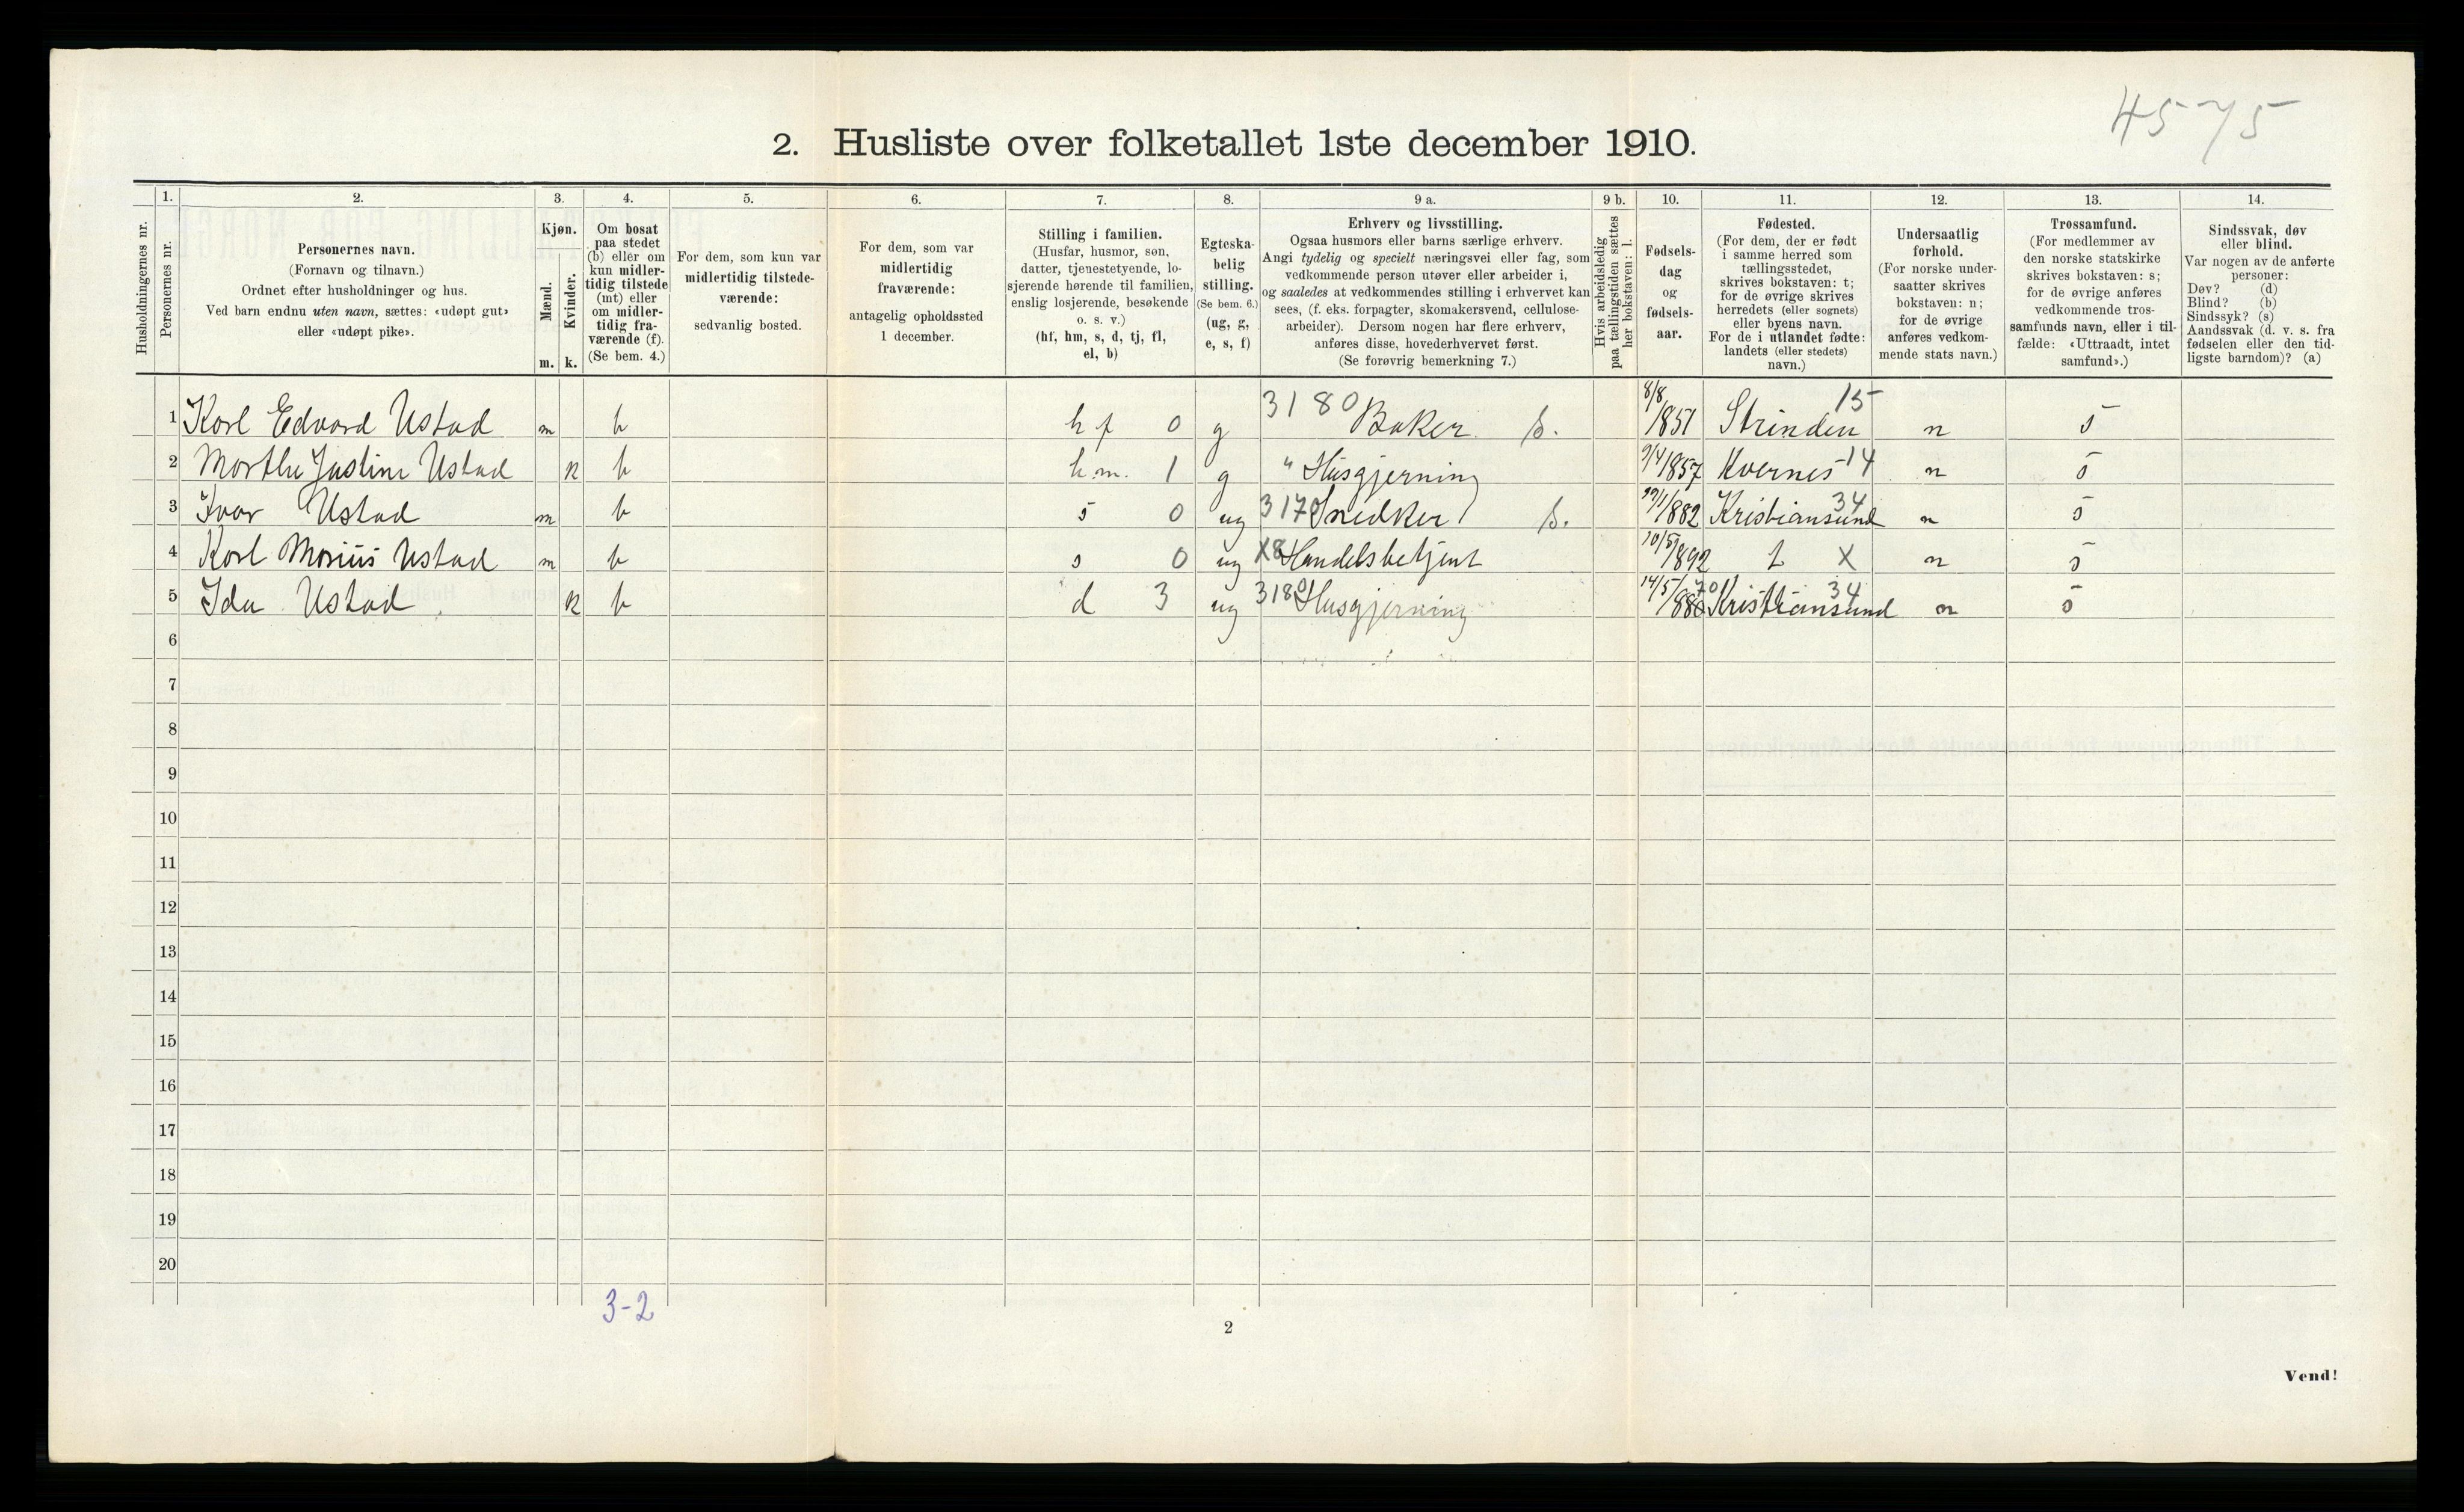 4575
2. Husliste over folketallet 1ste december 1910.
Husholdningernes nr.
1.
Personernes nr.
2.
Personernes navn.
(Fornavn og tilnavn.)
Ordnet efter husholdninger og hus.
Ved barn endnu uten navn, sættes: «udøpt gut»
eller «udøpt pike».
3.
Kjøn.
Mænd.
Kvinder.
m. k.
4.
Om bosat
paa stedet
(b) eller om
kun midler-
tidig tilstede
(mt) eller
om midler-
tidig fra-
værende (f).
(Se bem. 4.)
5.
For dem, som kun var
midlertidig tilstede-
værende:
sedvanlig bosted.
6.
For dem, som var
midlertidig
fraværende:
antagelig opholdssted
1 december.
7.
Stilling i familien.
(Husfar, husmor, søn,
datter, tjenestetyende, lo-
sjerende hørende til familien,
enslig losjerende, besøkende
o. s. v.)
(hf, hm, s, d, tj, fl,
el, b)
8.
Egteska-
belig
stilling.
(Se bem. 6.)
(ug, g,
e, s, f)
9 a.
Erhverv og livsstilling.
Ogsaa husmors eller barns særlige erhverv.
Angi tydelig og specielt næringsvei eller fag, som
vedkommende person utøver eller arbeider i,
og saaledes at vedkommendes stilling i erhvervet kan
sees, (f. eks. forpagter, skomakersvend, cellulose-
arbeider). Dersom nogen har flere erhverv,
anføres disse, hovederhvervet først.
(Se forøvrig bemerkning 7.)
9 b.
Hvis arbeidsledig
paa tællingstiden sættes
her bokstaven: l.
10.
Fødsels-
dag
og
fødsels-
aar.
11.
Fødested.
(For dem, der er født
i samme herred som
tællingsstedet,
skrives bokstaven: t;
for de øvrige skrives
herredets (eller sognets)
eller byens navn.
For de i utlandet fødte:
landets (eller stedets)
navn.)
12.
Undersaatlig
forhold.
(For norske under-
saatter skrives
bokstaven: n;
for de øvrige
anføres vedkom-
mende stats navn.)
13.
Trossamfund.
(For medlemmer av
den norske statskirke
skrives bokstaven: s;
for de øvrige anføres
vedkommende tros-
samfunds navn, eller i til-
fælde: «Uttraadt, intet
samfund».)
14.
Sindssvak, døv
eller blind.
Var nogen av de anførte
personer:
Døv? (d)
Blind? (b)
Sindssyk? (s)
Aandssvak (d. v. s. fra
fødselen eller den tid-
ligste barndom)? (a)
1 Karl Edvard Ustad m b hf 0 g 3180 Baker S. 8/8 1851 Strinden 15 n s
2 Marthe Justine Ustad k b h.m. 1 g " Husgjerning 9/4 1857 Kvernes 14 n s
3 Ivar Ustad m b s 0 ug 3170 Snedker S. 1882 Kristiansund 34 n s
4 Karl Marius Ustad m b s 0 ug X8 Handelsbetjent 10/5 1892 t X n s
5 Ida Ustad k b d 3 ug 3180 Husgjerning 14/5 1880 70 Kristiansund 34 n s
6
7
8
9
10
11
12
13
14
15
16
17
18
19
20
3-2
2
Vend!